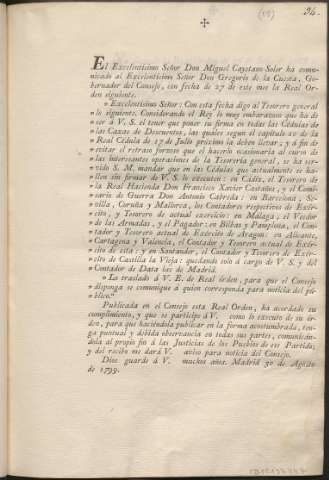 94.
✠
El Excelentisimo Señor Don Miguel Cayetano Soler ha comu-
nicado al Excelentisimo Señor Don Gregorio de la Cuesta, Go-
bernador del Consejo, con fecha de 27 de este mes la Real Or-
den siguiente.
» Excelentisimo Señor: Con esta fecha digo al Tesorero general
» lo siguiente. Considerando el Rey lo muy embarazoso que ha de
» ser á V. S. el tener que poner su firma en todas las Cédulas de
» las Caxas de Descuentos, las quales segun el capitulo 10 de la
» Real Cédula de 17 de Julio proximo la deben llevar; y á fin de
» evitar el retraso forzoso que el hacerlo ocasionaria al curso de
» las interesantes operaciones de la Tesorería general, se ha ser-
» vido S. M. mandar que en las Cédulas que actualmente se ha-
» llen sin firmar de V. S. lo executen: en Cadiz, el Tesorero de
» la Real Hacienda Don Francisco Xavier Castaños, y el Comi-
» sario de Guerra Don Antonio Cabrera: en Barcelona, Se-
» villa, Coruña y Mallorca, los Contadores respectivos de Exér-
» cito, y Tesorero de actual exercicio: en Málaga, el Veedor
» de las Armadas, y el Pagador: en Bilbao y Pamplona, el Con-
» tador y Tesorero actual de Exército de Aragon: en Alicante,
» Cartagena y Valencia, el Contador y Tesorero actual de Exér-
» cito de esta: y en Santander, el Contador y Tesorero de Exér-
» cito de Castilla la Vieja: quedando solo á cargo de V. S. y del
» Contador de Data las de Madrid.
» Lo traslado á V. E. de Real órden, para que el Consejo
» disponga se comunique á quien corresponda para noticia del pú-
» blico."
Publicada en el Consejo esta Real Orden, ha acordado su
cumplimiento, y que se participe á V. como lo executo de su ór-
den, para que haciéndola publicar en la forma acostumbrada, ten-
ga puntual y debida observancia en todas sus partes, comunicán-
dola al propio fin á las Justicias de los Pueblos de ese Partido;
y del recibo me dará V. aviso para noticia del Consejo.
Dios guarde á V. muchos años. Madrid 30 de Agosto
de 1799.